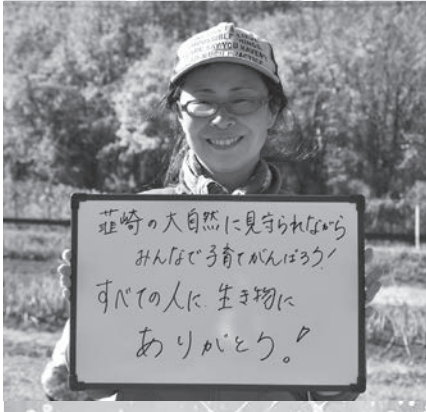 韮崎の大自然に見守られながら
みんなで子育てがんばろう!
すべての人に 生き物に
ありがとう。!